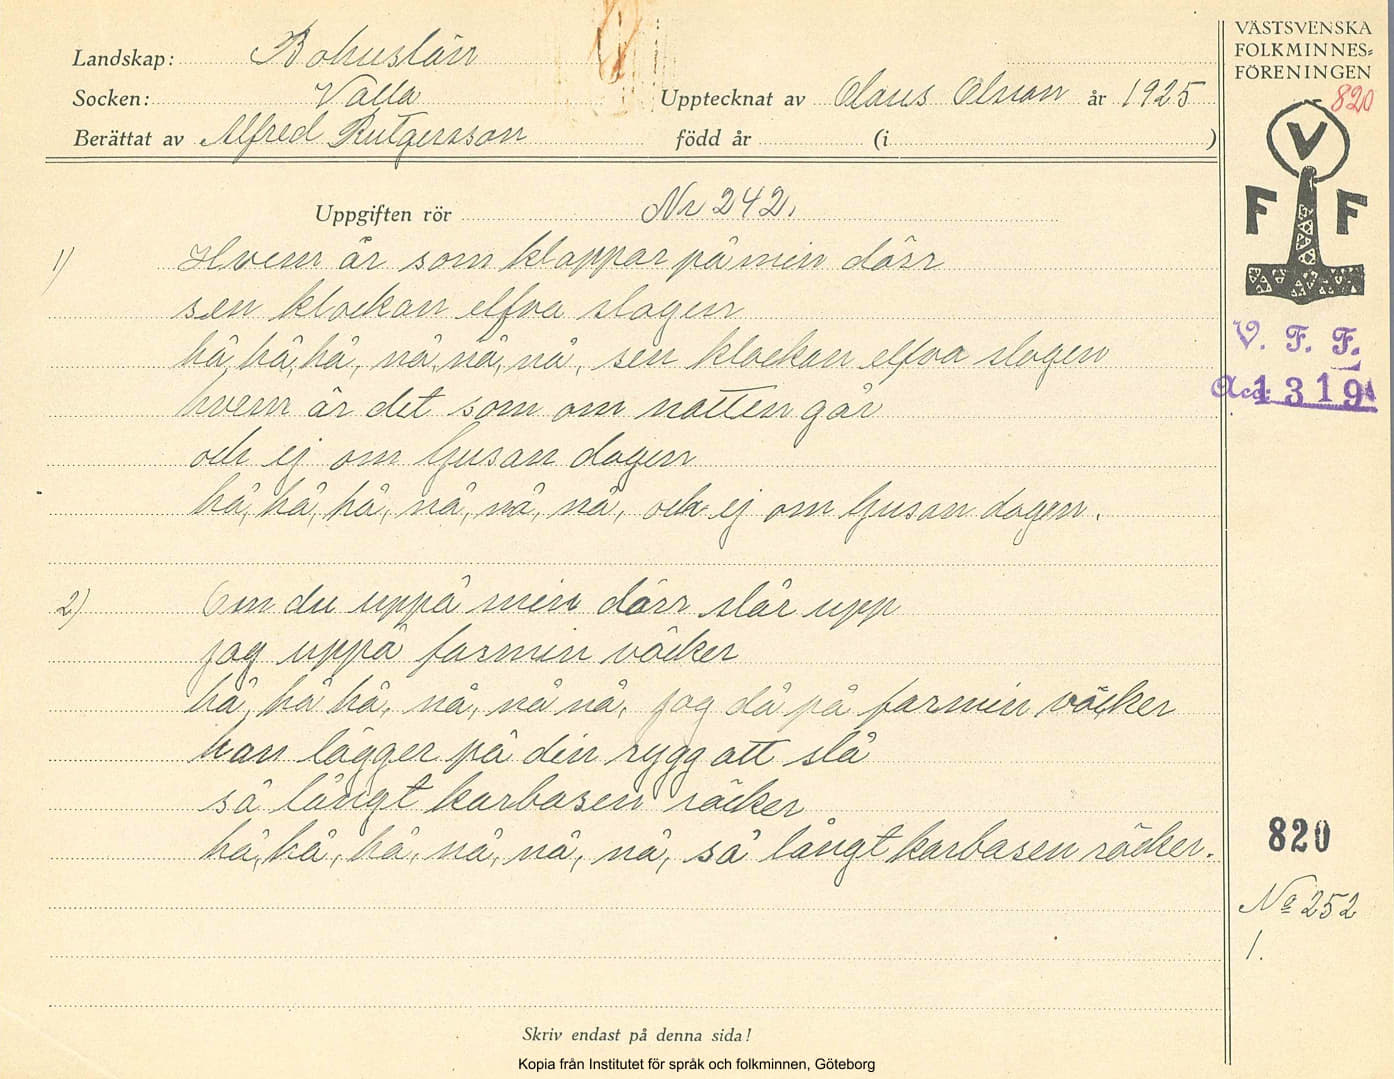 Landskap: Bohuslän
Socken: Valla
Upptecknat av Claus Olsson år 1925
Berättat av Alfred Rutgersson född år (i )
Uppgiften rör Nr 242.
1) Hvem är som klappar på min dörr
sen klockan elfva slagen
hå, hå, hå, nå, nå, nå, sen klockan elfva slagen
hvem är det som om natten går
och ej om ljusan dagen
hå, hå, hå, nå, nå, nå, och ej om ljusan dagen.
2) Om du uppå min dörr slår upp
jag uppå farmin väcker
hå, hå hå, nå, nå nå, jag då på farmin väcker
han lägger på din rygg att slå
så långt karbasen räcker
hå, hå, hå, nå, nå, nå, så långt karbasen räcker.
Skriv endast på denna sida!
Kopia från Institutet för språk och folkminnen, Göteborg
VÄSTSVENSKA
FOLKMINNES=
FÖRENINGEN
820
V
F F
V. F. F.
Acc. 1319
820
No 252
1.